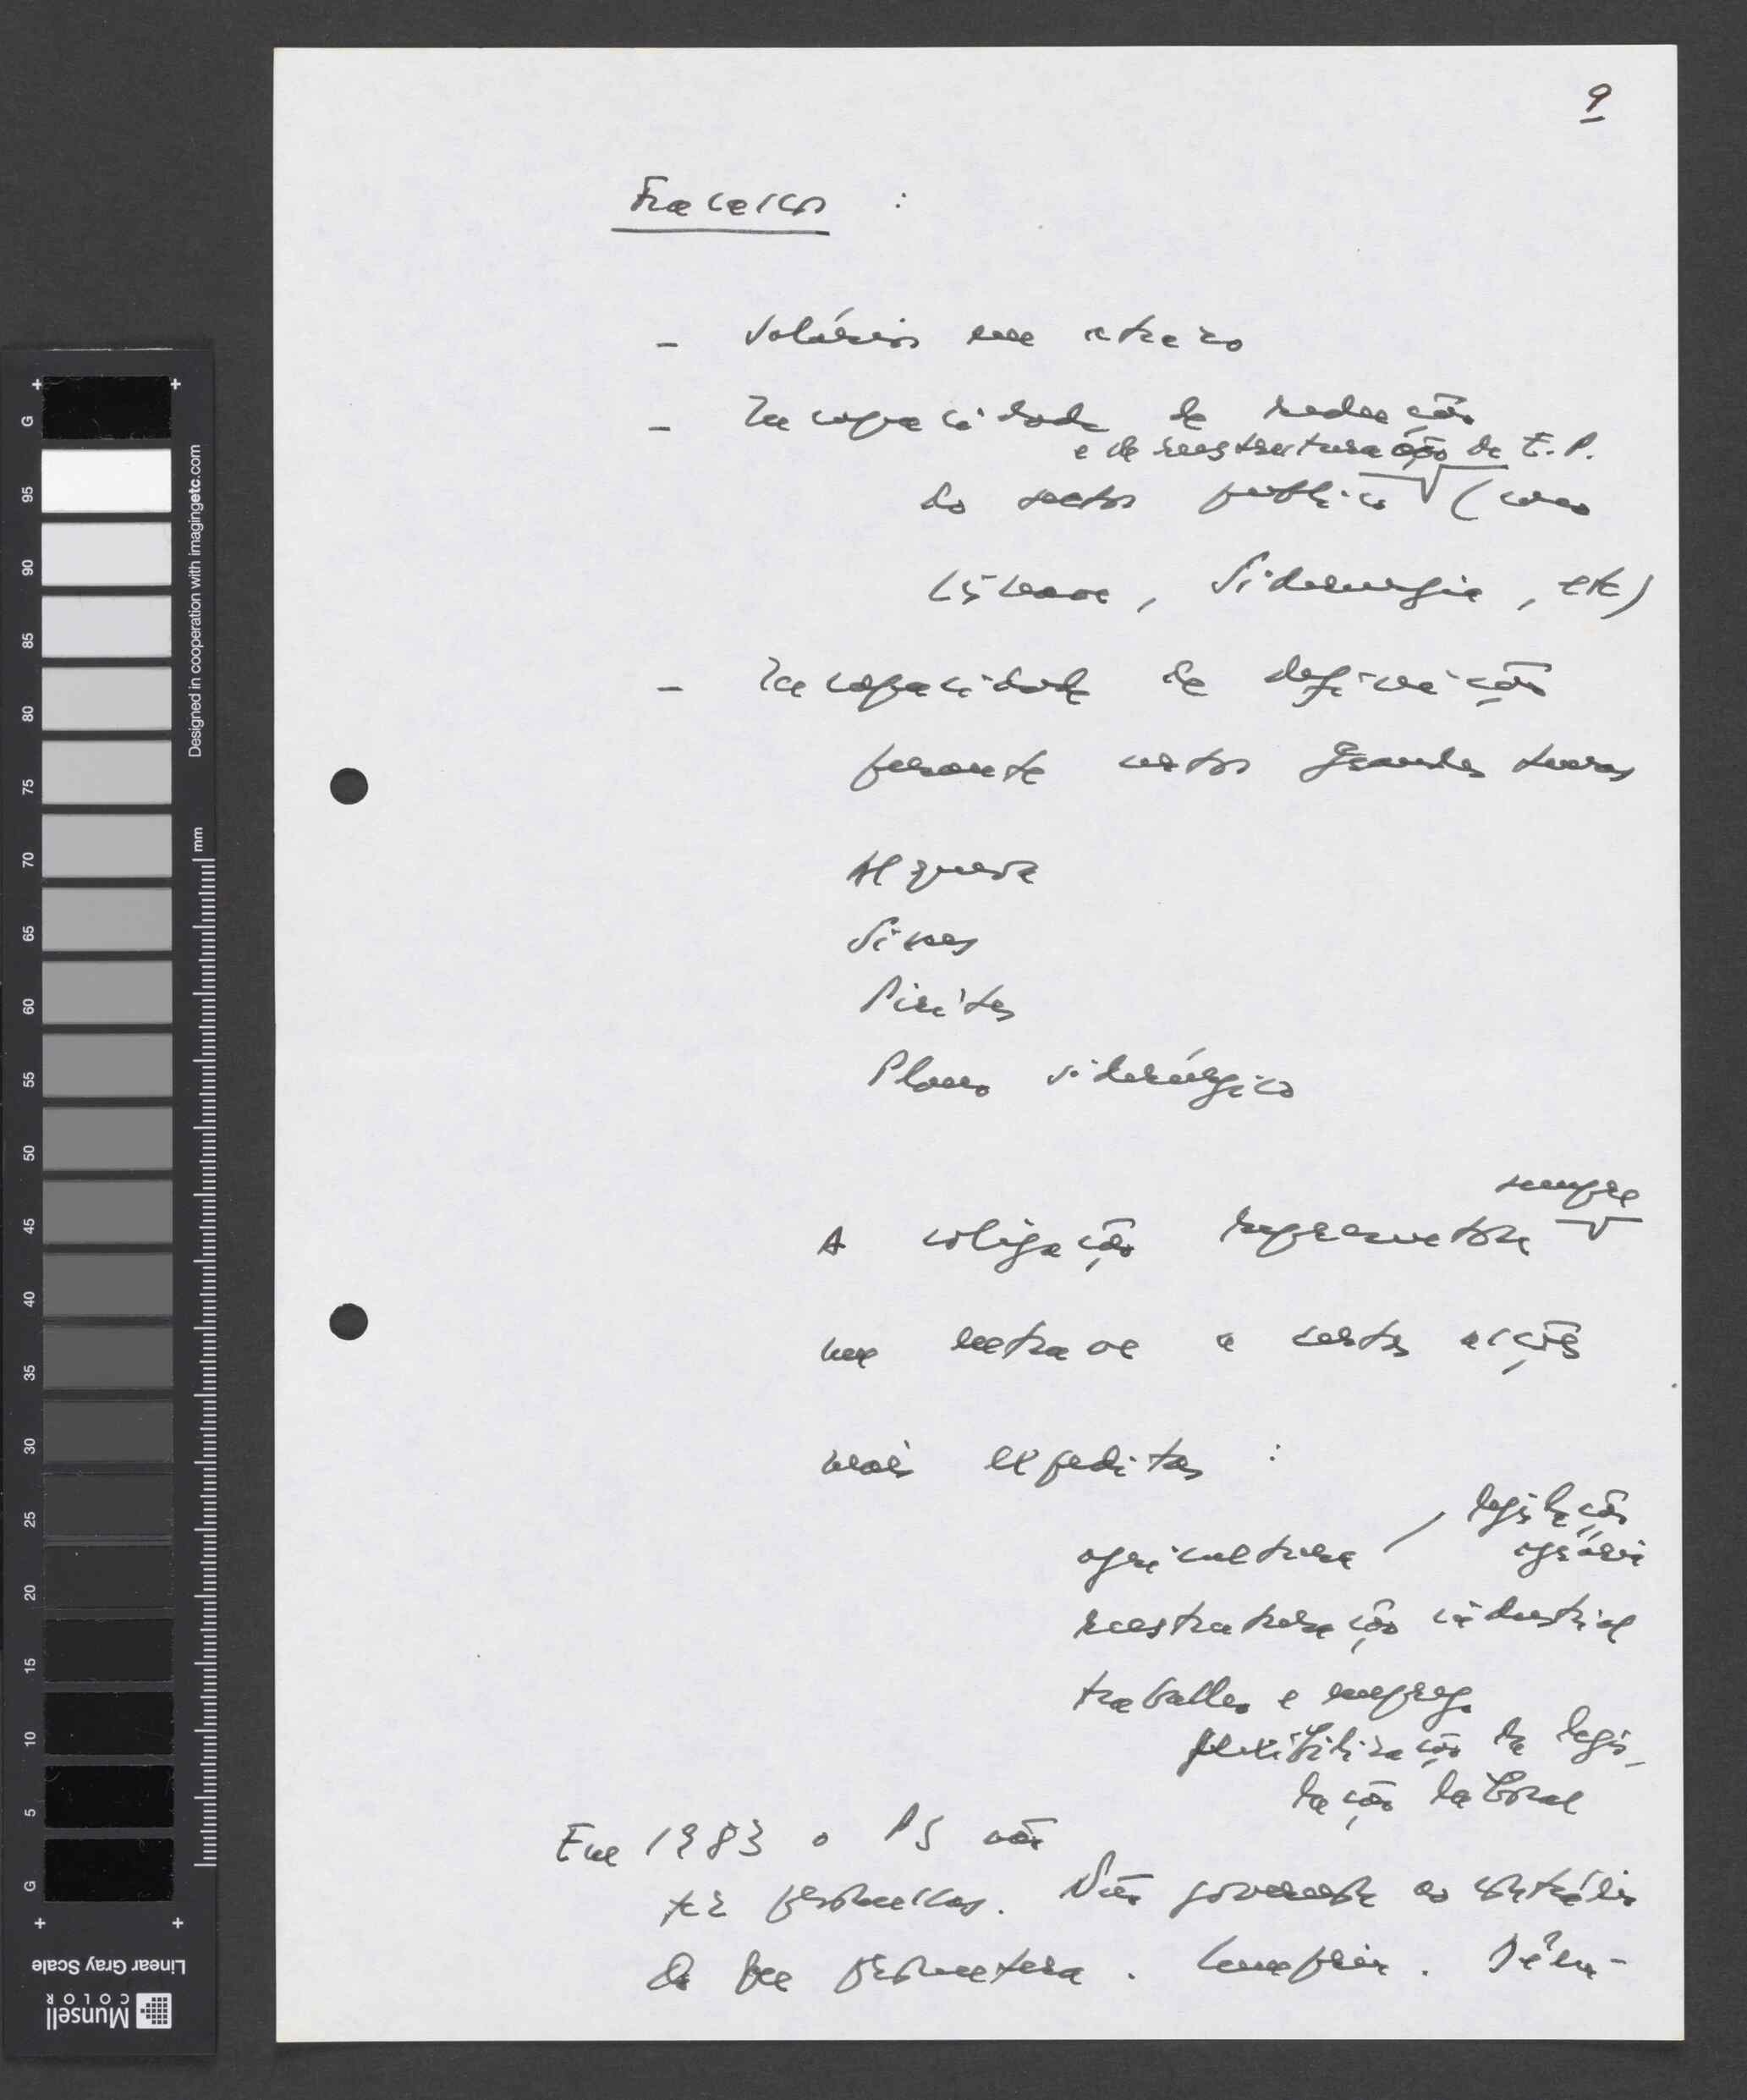 9
Fracassos :
- Salários em atraso
- Incapacidade de redução
e de reestruturação de E.P.
do sector público (como
Lisnave, Siderurgia, etc)
- Incapacidade de definição
perante certos grandes temas
Alqueva
Sines
Pirites
Plano siderúrgico
sempre
A coligação representou
um entrave a certas acções
mais expeditas :
agricultura / legislação
agrária
reestruturação industrial
trabalho e emprego
flexibilização da legis-
lação laboral
Em 1983 o PS não
fez promessas. Não governou ao contrário
do que prometera. Cumpriu.
G 95 90 85 80 75 70 65 60 55 50 45 40 35 30 25 20 15 10 5 G
mm
Designed in cooperation with imagingetc.com
Linear Gray Scale
Munsell
COLOR